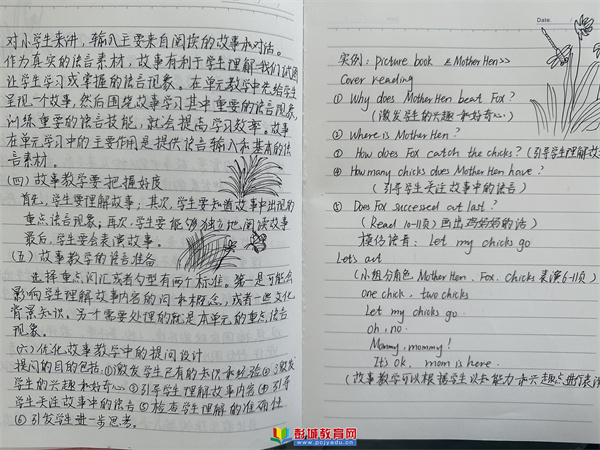 对小学生来讲,输入主要来自阅读的故事和对话。
作为真实的语言素材,故事有利于学生理解我们试图
让学生学习或掌握的语言现象。在单元教学中先给学生
呈现一个故事,然后围绕故事学习其中重要的语言现象,
训练重要的语言技能,就会提高学习效率。故事
在单元学习中的主要作用是提供语言输入和基本的语
言素材.
(四)故事教学要把握好度
首先,学生要理解故事;其次,学生要知道故事中出现的
重点语言现象;再次,学生要能够独立地阅读故事
最后,学生要会表演故事。
(五)故事教学的语言准备
选择重点词汇或者句型有两个标准。第一是可能会
影响学生理解故事内容的词和概念,或者一些文化
背景知识。另一个需要处理的就是本单元的重点语言
现象。
(六)优化故事教学中的提问设计
提问的目的包括:①激发学生已有的知识和经验②激发
学生的兴趣和好奇心③引导学生理解故事内容④引导
学生关注故事中的语言⑤检查学生理解的准确性
⑥引发学生进一步思考.
Date.
实例: picture book 《Mother Hen》
Cover reading
① Why does Mother Hen beat Fox?
(激发学生的兴趣和好奇心)
② Where is Mother Hen?
③ How does Fox catch the chicks? (引导学生理解故
④ How many chicks does Mother Hen have?
(引导学生关注故事中的语言)
⑤ Does Fox succeed out last?
(Read 10-11页) 画出鸡妈妈的话)
模仿语音: Let my chicks go
Let's act
(小组分角色, Mother Hen, Fox, Chicks 表演6-11页)
one chick, two chicks
Let my chicks go.
oh, no.
Mommy, mommy!
It's ok, mom is here.
(故事教学可以根据学生认知能力和兴趣点进行表演
彭城教育网
www.pcjyedu.cn